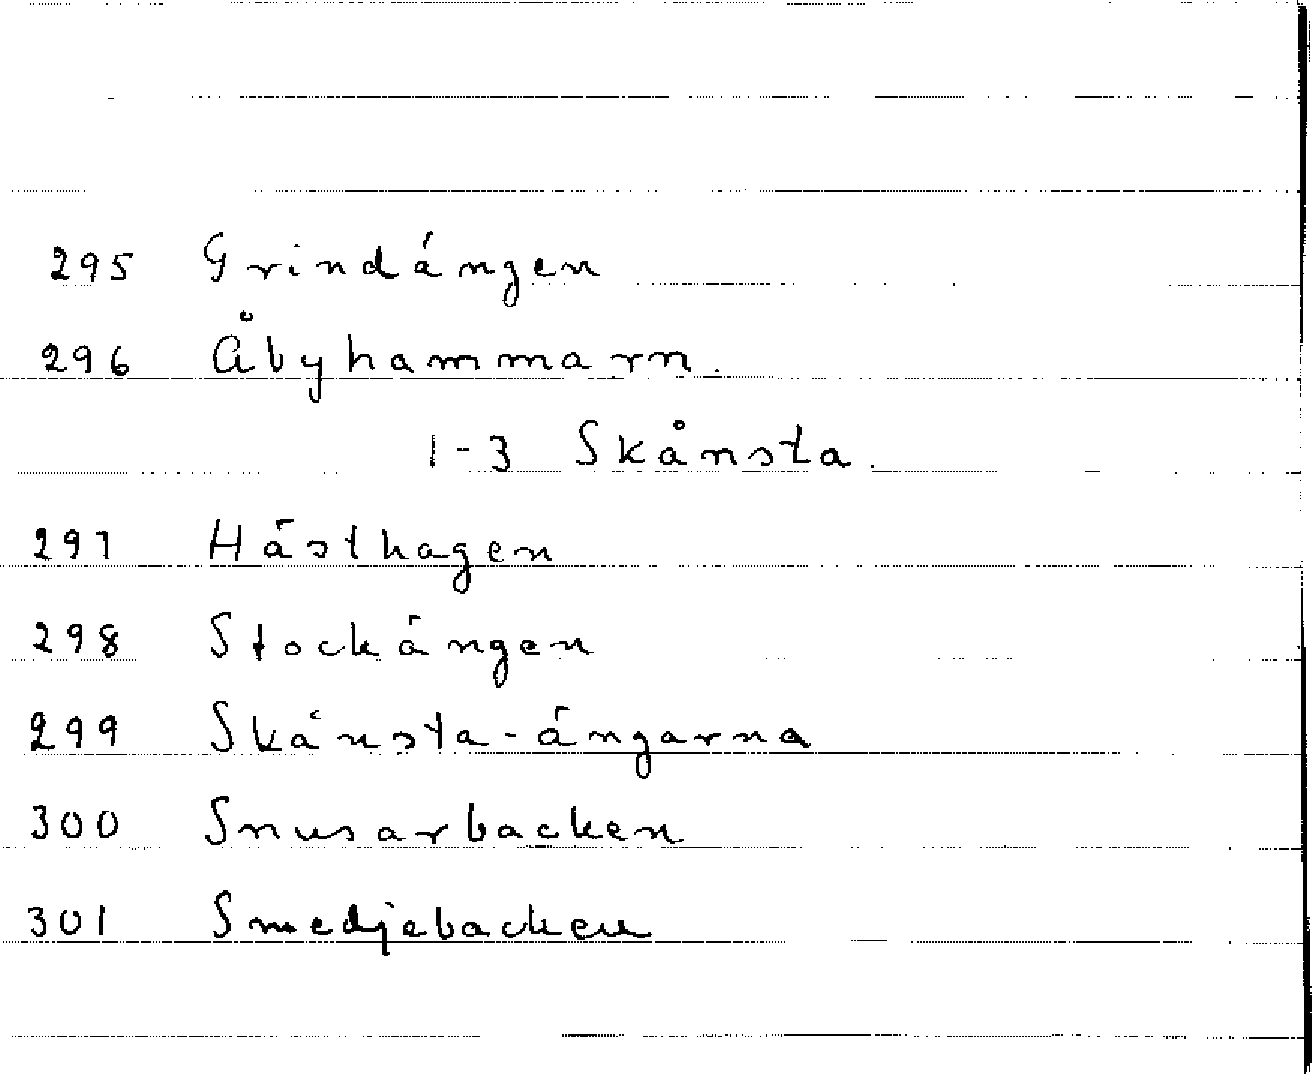 295 Grindängen
296 Åbyhammarn.
1-3 Skånsta.
297 Hästhagen
298 Stockängen
299 Skånsta-ängarna
300 Snusarbacken
301 Smedjebacken